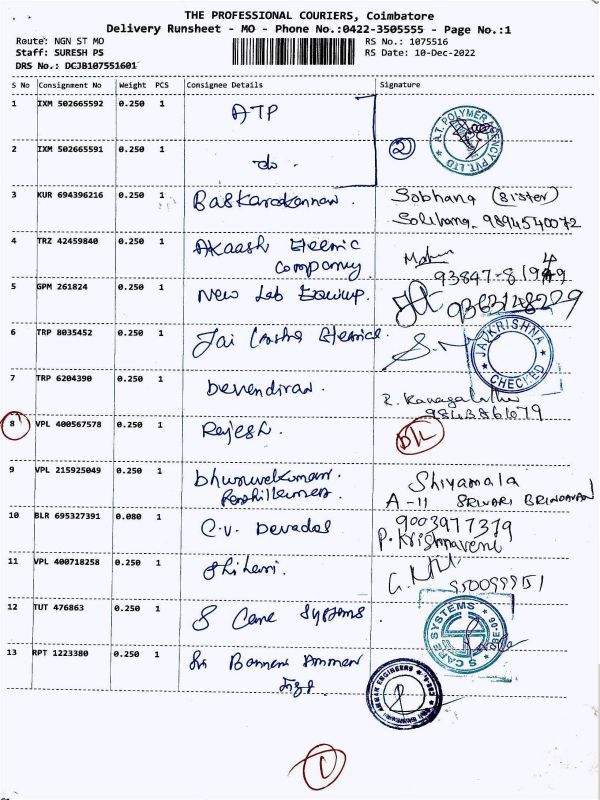 THE PROFESSIONAL COURIERS, Coimbatore
Delivery Runsheet - MO - Phone No.:0422-3505555 - Page No.:1
Route: NGN ST MO
RS No.: 1075516
Staff: SURESH PS
RS Date: 10-Dec-2022
DRS No.: DCJB107551601
S No Consignment No Weight PCS Consignee Details Signature
1 IXM 502665592 0.250 1 ATP
A.T. POLYMER AGENCY PVT. LTD
2 IXM 502665591 0.250 1 do. 2
3 KUR 694396216 0.250 1 Baskarakannan. Sobhana (sister)
Sobhana. 9894540072
4 TRZ 42459840 0.250 1 Akaash Electric
company
5 GPM 261824 0.250 1 New Lab Equip. 9363148229
6 TRP 8035452 0.250 1 Jai Electrical
S.M
JAI KRISHNA CHECKED
7 TRP 6204390 0.250 1 Devendiran.
8 VPL 400567578 0.250 1 Rajesh. D/L
9 VPL 215925049 0.250 1 Shiyamala
A-11 SRIVARI BRINDAVAN
9003977379
10 BLR 695327391 0.080 1 C.V. Devadas
P. Krishnaveni
11 VPL 400718258 0.250 1
12 TUT 476863 0.250 1 S Care Systems
S CARE SYSTEMS
13 RPT 1223380 0.250 1 Sri Bannari Amman
AMMAN ENGINEERS
1